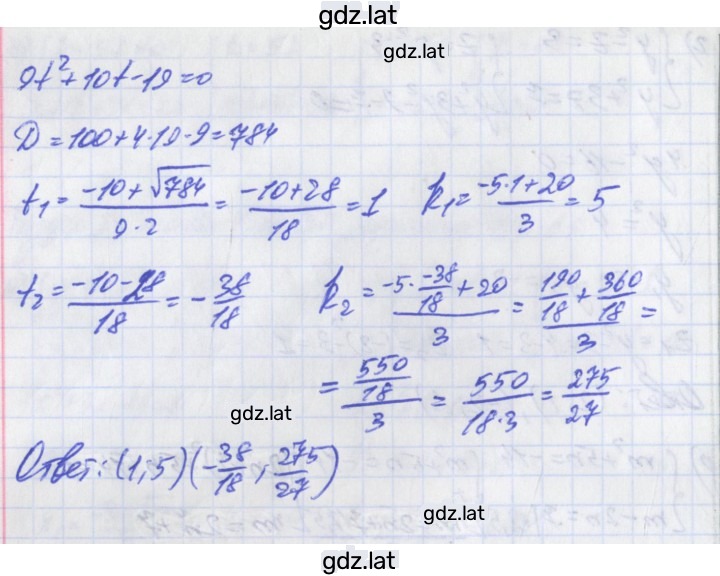 gdz.lat
9t²+10t-19=0
D=100+4·19·9=784
t₁=(-10+√784)/(9·2)=(-10+28)/18=1   k₁=(-5·1+20)/3=5
t₂=(-10-28)/18=-38/18   k₂=(-5·(-38/18)+20)/3=(190/18+360/18)/3=
=(550/18)/3=550/(18·3)=275/27
gdz.lat
Ответ: (1;5)(-38/18; 275/27)
gdz.lat